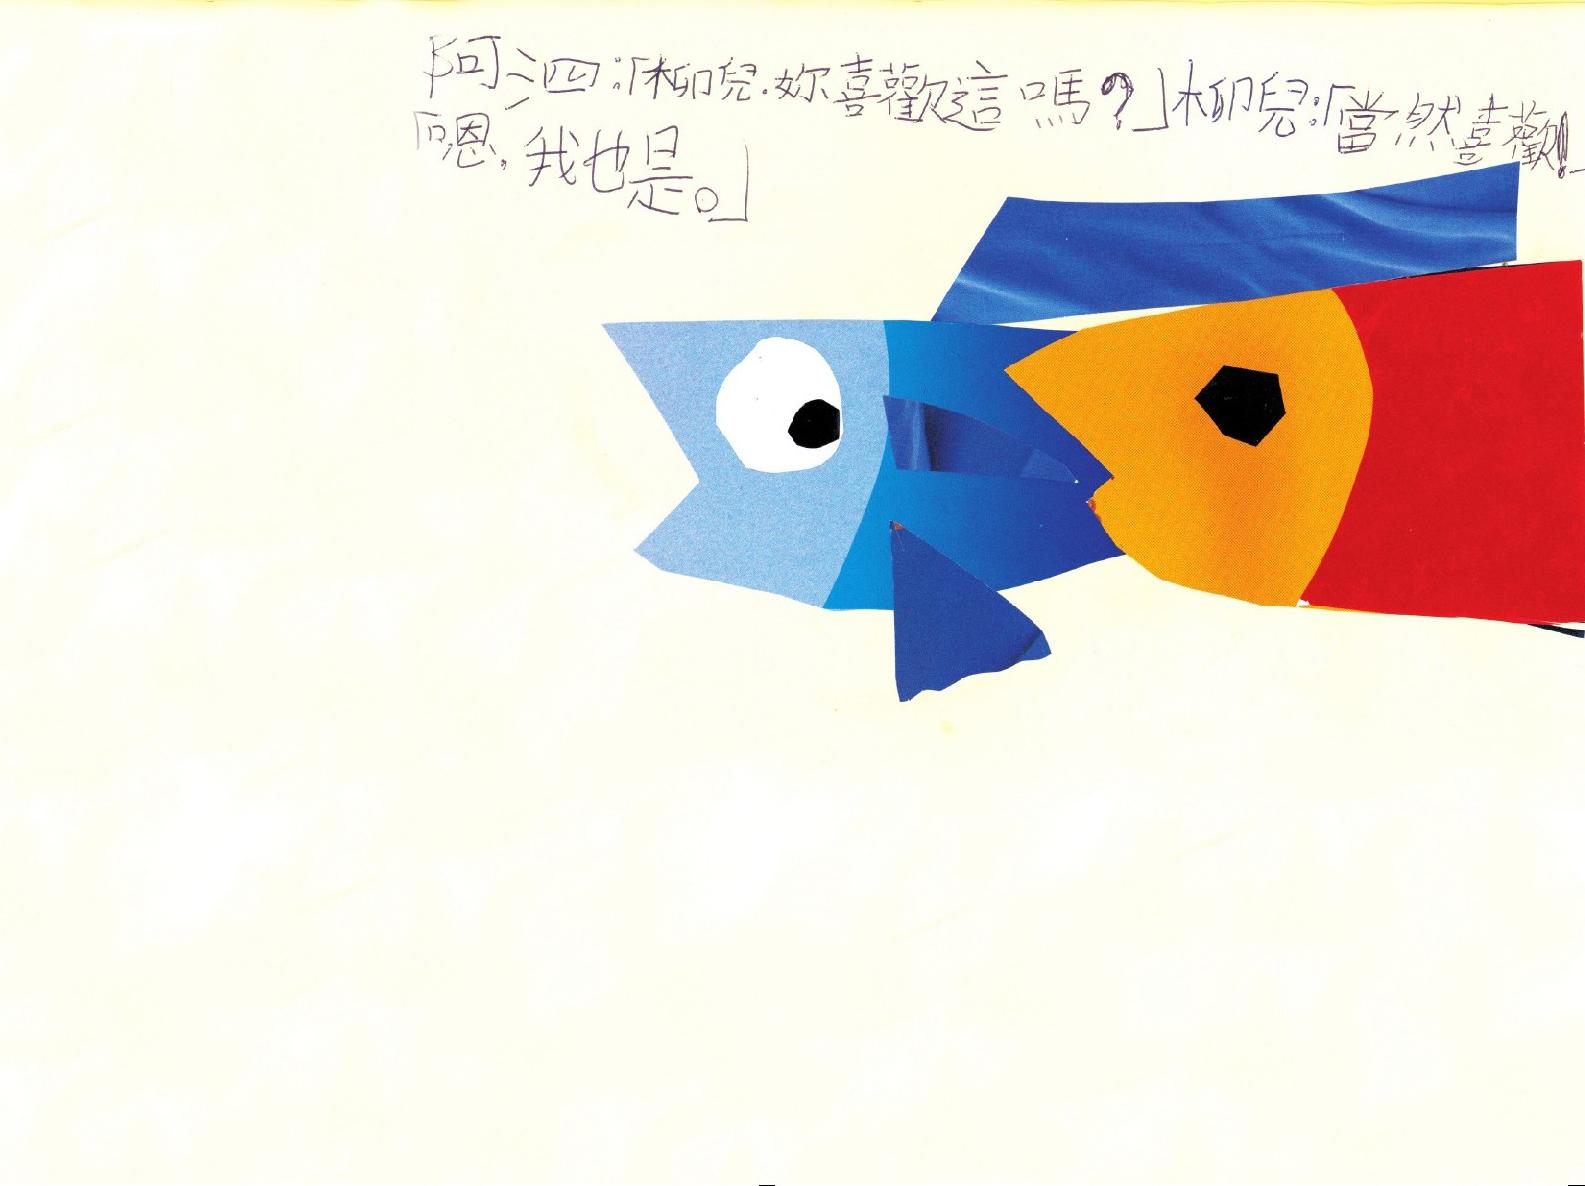 阿泗:「柳兒.妳喜歡這嗎?」柳兒:「當然喜歡!」
「嗯.我也是。」